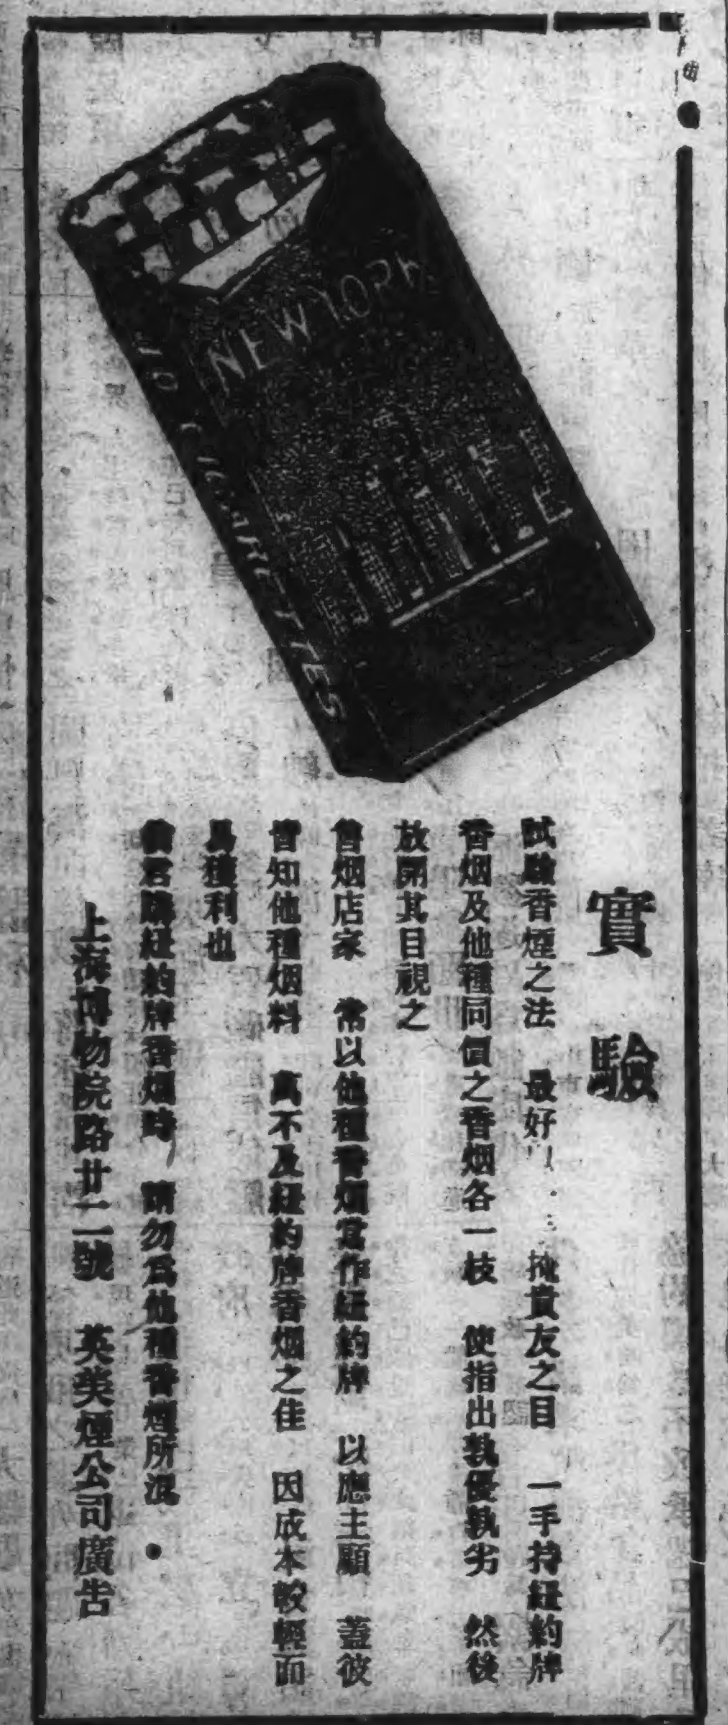 NEW YORK
10 CIGARETTES
實驗
試驗香煙之法　最好以　掩貴友之目　一手持紐約牌
香烟及他種同價之香烟各一枝　使指出孰優孰劣　然後
放開其目視之
售烟店家　常以他種香烟當作紐約牌　以應主顧　蓋彼
皆知他種烟料　萬不及紐約牌香烟之佳　因成本較輕而
易獲利也
君購紐約牌香烟時　請勿為他種香煙所混
上海博物院路廿二號　英美煙公司廣告